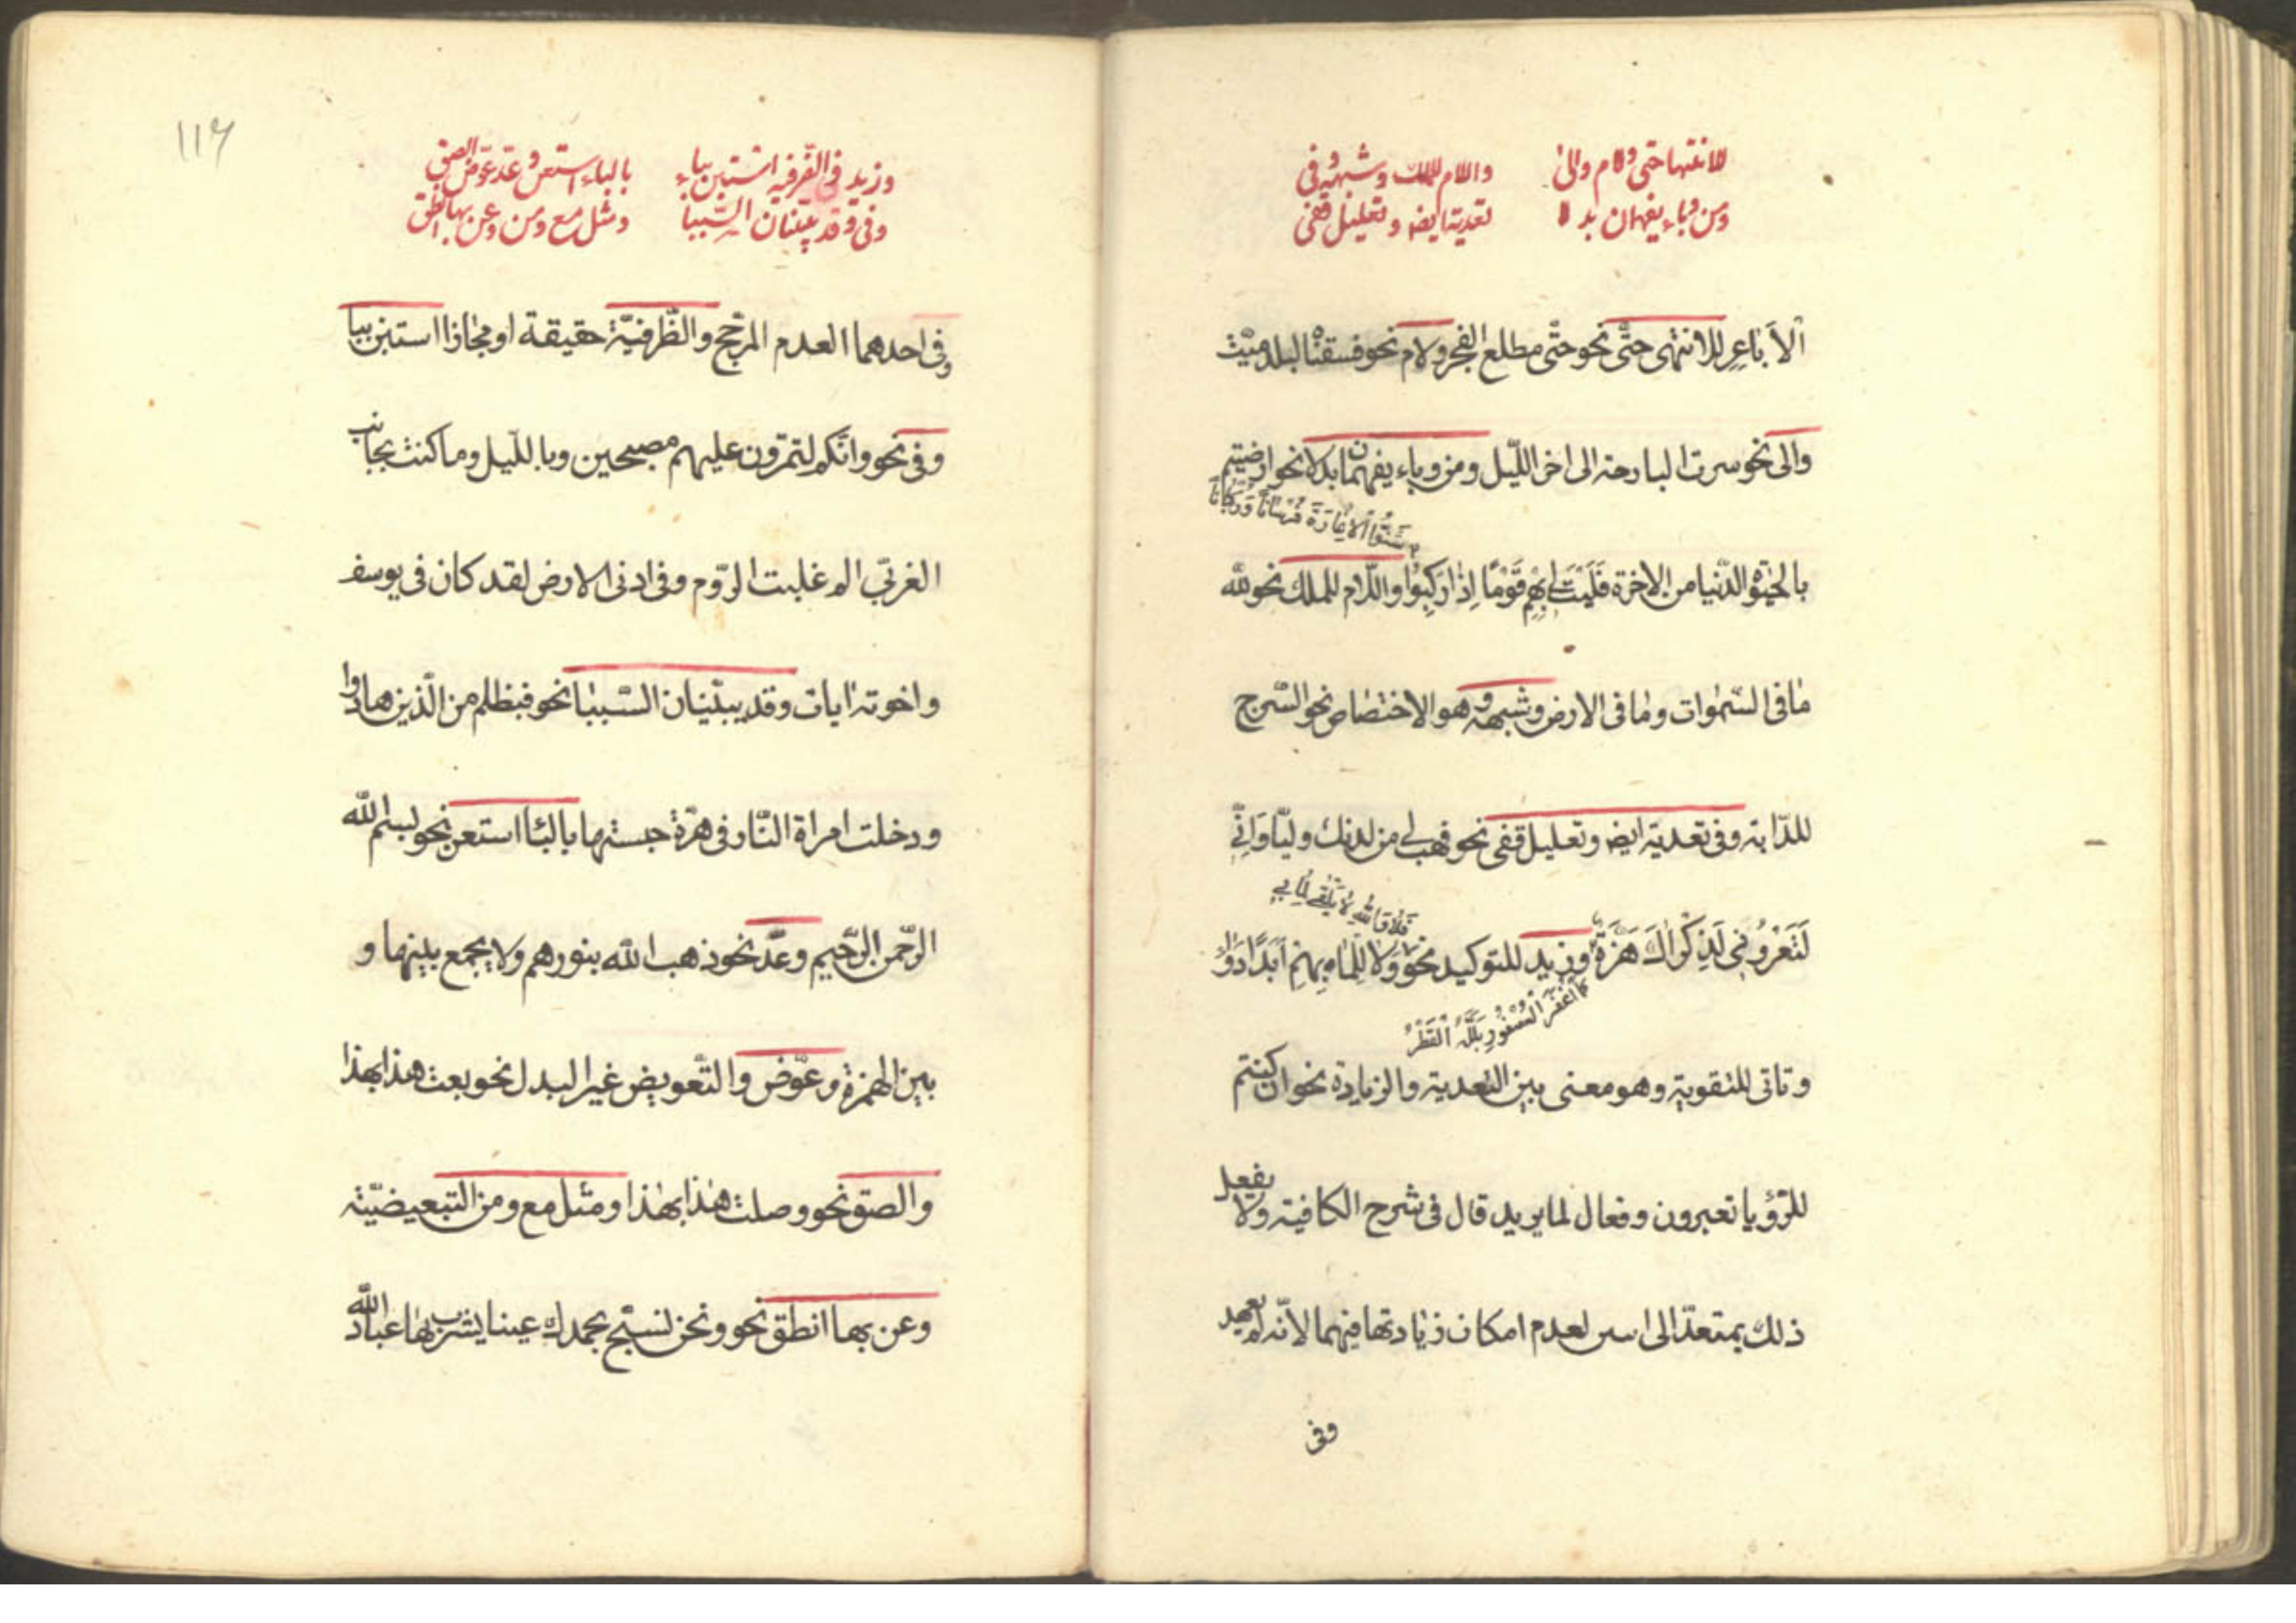 للانتها حتى ولام والى واللام للملك وشبهه وفى
ومن وباء يفهمان بدلا تعدية ايضه وتعليل قفى
ألا باعر للانتهى حتّى نحو حتّى مطلع الفجر ولام نحو فسقناه لبلد ميّت
والى نحو سرت البارحة الى اخر اللّيل ومن وباء يفهمان بدلا نحو ارضيتم
شَنُّوا الاغارَةَ فُرْسَانًا وَرُكْبَانًا
بالحيوة الدّنيا من الاخرة فَلَيْتَ لِي بِهِم قَوْمًا إذا رَكِبُوا واللّام للملك نحو لله
مافى السّموات وما فى الارض وشبهه وهو الاختصاص نحو السّرج
للدّابة وفى تعدية ايضه وتعليل قفى نحو فهب لى من لدنك وليّا وَانِّى
فَلا وَاللهِ لا يُلْقى لِمَا بِي
لَتَعْرُونِى لَذِكْرَاكَ هَزَّةٌ وزيد للتوكيد نحو وَلا لِلِمَا بِهِمْ أبَدًا دَوَاءُ
كما انْتَفَضَ الْعُصْفُورُ بَلَّلَهُ الْقَطْرُ
وتاتى للتقوية وهو معنى بين التعدية والزيادة نحو ان كنتم
للرّؤيا تعبرون وفعال لما يريد قال فى شرح الكافية ولا يفعل
ذلك بمتعدّ الى اسن لعدم امكان زيادتها فيهما لانّه لم يعهد
وفى
١١٦
وزيد والظّرفيه استبن بباء بالباء استعن وعدّ عوّض الصق
وفى وقد يبيّنان السّببا ومثل مع ومن وعن بها انطق
وفى احدهما العدم المرجّح والظّرفيّة حقيقة او مجازا استبن ببا
وفى نحو وانّكم لتمرّون عليهم مصبحين وبا للّيل وما كنت بجانب
الغربّى الم غلبت الرّوم وفى ادنى الارض لقد كان فى يوسف
واخوته ايات وقد يبيّنان السّببا نحو فبظلم من الّذين هادوا
ودخلت امراة النّار فى هرّة حبستها بالبا استعن نحو بسم الله
الرّحمن الرّحيم وعدّ نحو ذهب الله بنورهم ولا يجمع بينها و
بين الهمزة وعوّض والتّعويض غير البدل نحو بعت هذا بهذا
والصق نحو وصلت هذا بهذا ومثل مع ومن التبعيضيّة
وعن بها انطق نحو ونحن نسبّح بحمدك عينا يشرب بها عباد الله